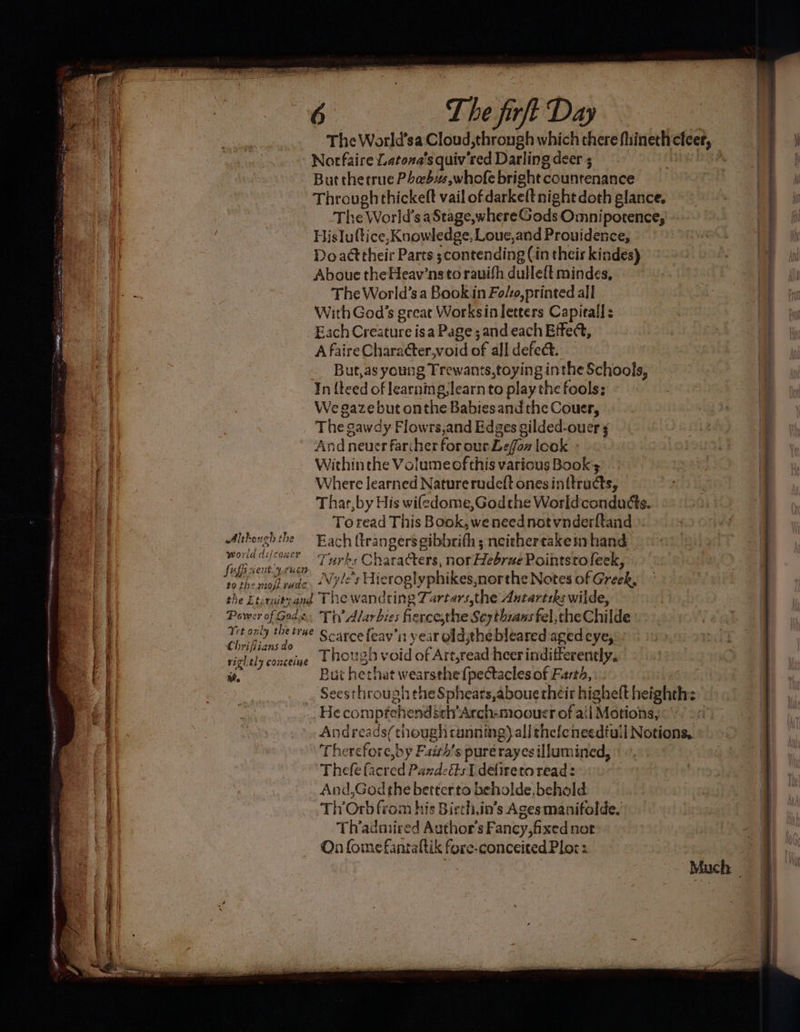 6 The first Day
The World'sa Cloud,through which there shineth cleer,
Not faire Latona's quiv'red Darling deer;
But the true Phœbus,whose bright countenance
Through thickest vail of darkest night doth glance.
The World's a Stage,where Gods Omnipotence,
His Iustice,Knowledge,Loue,and Prouidence,
Do act their Parts;contending (in their kindes)
Aboue the Heav'ns to rauish dullest mindes.
The World's a Book in Folio,printed all
With God's great Works in letters Capitall:
Each Creature is a Page;and each Effect,
A faire Character,void of all defect.
But,as young Trewants,toying in the Schools,
In steed of learning,learn to play the fools:
We gaze but on the Babies and the Couer,
The gawdy Flowrs,and Edges gilded-ouer;
And neuer farther for our Lesson look
Within the Volume of this various Book;
Where learned Nature rudest ones instructs,
That,by His wisedome,God the World conducts.
To read This Book,we need not vnderstand
Although the world discouer sufficient.y euen to the most rude the Eternity and Power of God: Yet only the true Christians do rightly conceiue it.
Each strangers gibbrish; neither take in hand
Turks Characters, nor Hebrue Points to seek,
Nyle's Hieroglyphikes,nor the Notes of Greek.
The wandring Tartars,the Antartiks wilde,
Th'Alarbies fierce,the Scythians fel,the Childe
Scarce seav'n year old,the bleared aged eye,
Though void of Art,read heer indifferently.
But he that wears the spectacles of Faith,
Sees through the Sphears,aboue their highest heighth:
He comprehends th'Arch-moouer of all Motions,
And reads(though running) all these needfull Notions.
Therefore,by Faith's pure rayes illumined,
These sacred Pandects I desire to read:
And,God the better to beholde,behold
Th'Orb from his Birth,in's Ages manifolde.
Th'admired Author's Fancy,fixed not
On some fantastik fore-conceited Plot:
Much